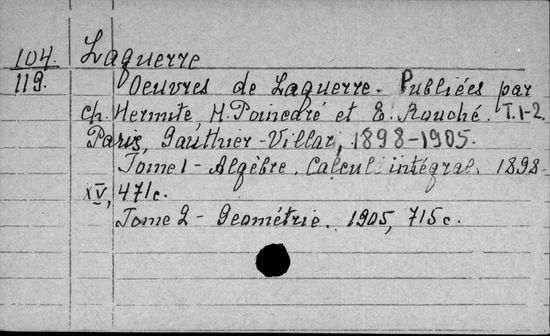 104. Laguerre
119. Oeuvres de Laguerre. Publiées par
Ch. Hermite, H. Poincaré et E. Rouché. T. 1-2.
Paris, Gauthier-Villar, 1898-1905.
Tome 1 - Algèbre. Calcul intégral. 1898.
XV, 471c.
Tome 2 - Geométrie. 1905, 715c.